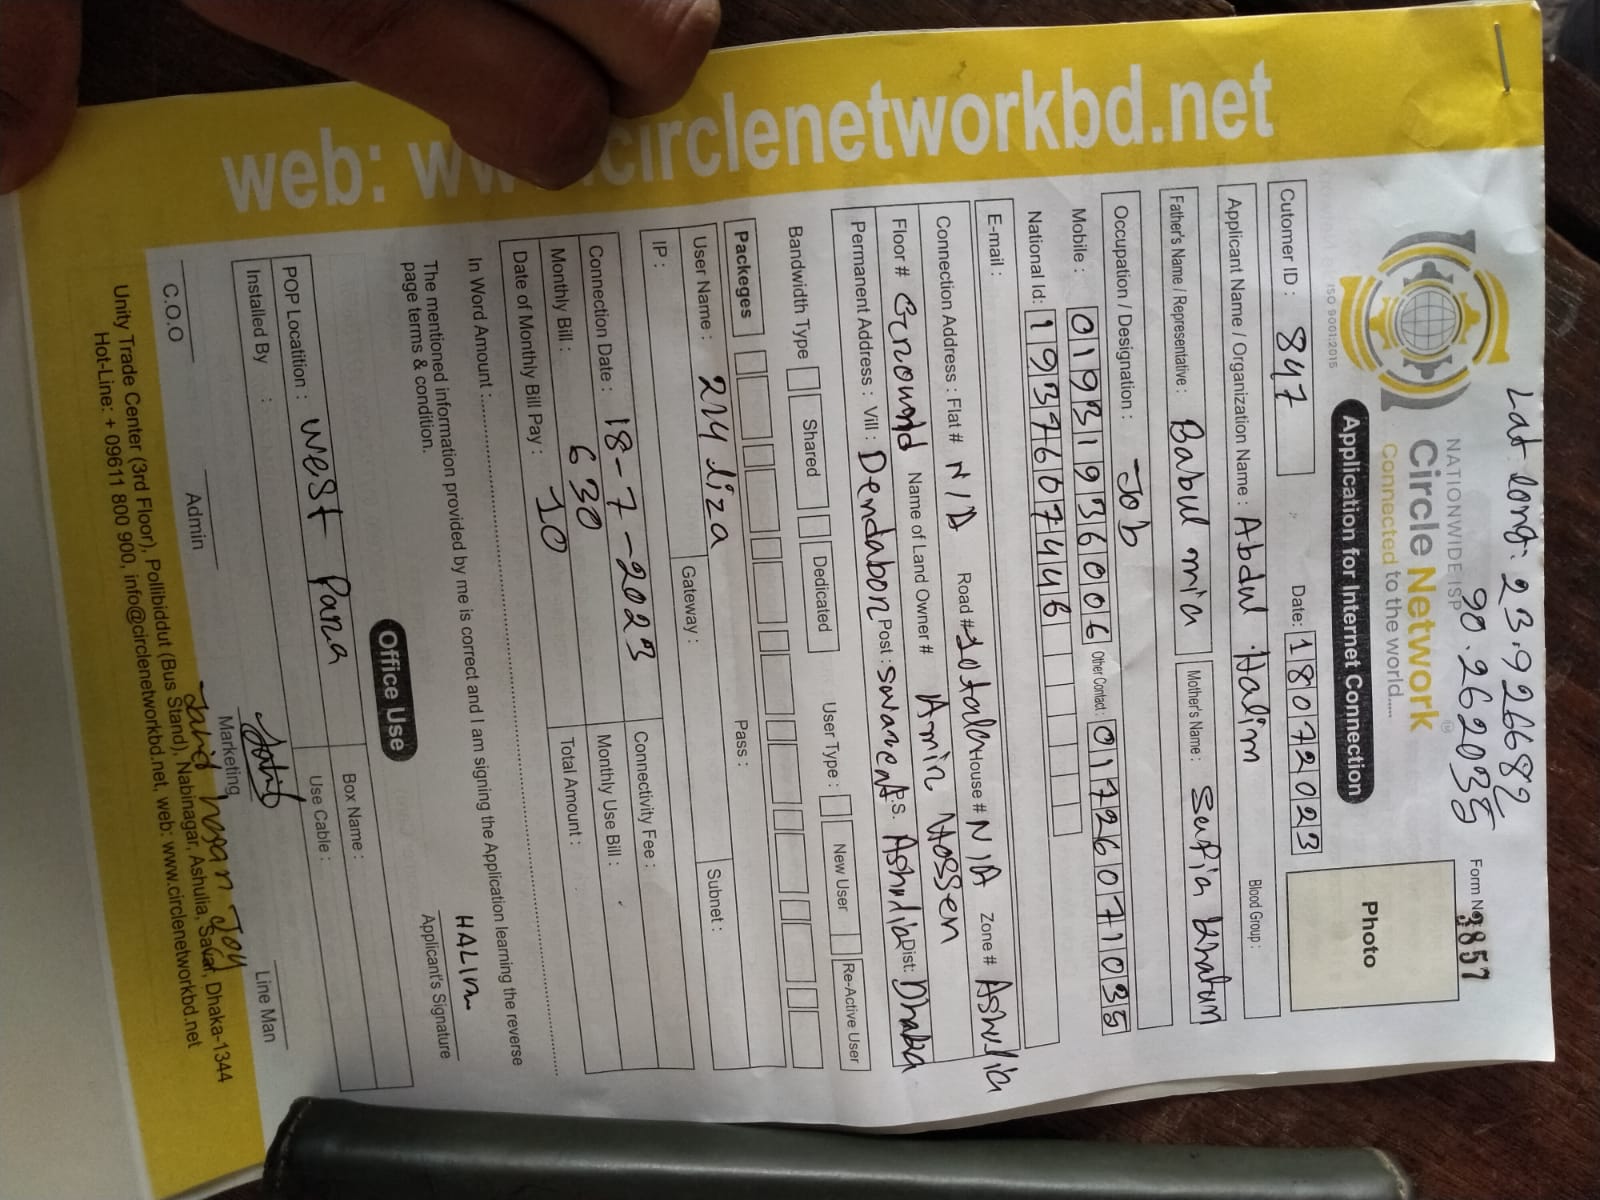 Lat long: 23.926682
90.262035
NATIONWIDE ISP
Circle Network
Connected to the world.....
ISO 9001:2015
Form No
3857
Application for Internet Connection
Photo
Cutomer ID : 847 Date: 18072023
Applicant Name / Organization Name : Abdul Halim Blood Group :
Father's Name / Representative : Babul mia Mother's Name : Safia Khatun
Occupation / Designation : Job
Mobile : 01931936006 Other Contact : 01726071035
National Id: 1937607446
E-mail :
Connection Address : Flat # N/A Road # House # N/A Zone # Ashulia
Floor # Ground Name of Land Owner # Amin Hossen
Permanent Address : Vill : Dendabon Post : P.S. Ashulia Dist: Dhaka
Bandwidth Type Shared Dedicated User Type : New User Re-Active User
Packeges
User Name : 214 liza Pass :
IP : Gateway : Subnet :
Connection Date : 18-7-2023 Connectivity Fee :
Monthly Bill : 630 Monthly Use Bill :
Date of Monthly Bill Pay : 10 Total Amount :
In Word Amount :
The mentioned information provided by me is correct and I am signing the Application learning the reverse
page terms & condition.
HALIM
Applicant's Signature
Office Use
POP Locatition : West Para Box Name :
Installed By : Use Cable :
C.O.O Admin Marketing Line Man
Jahid hasan Joy
Unity Trade Center (3rd Floor), Pollibiddut (Bus Stand), Nabinagar, Ashulia, Savar, Dhaka-1344
Hot-Line: + 09611 800 900, info@circlenetworkbd.net, web: www.circlenetworkbd.net
web: www.circlenetworkbd.net